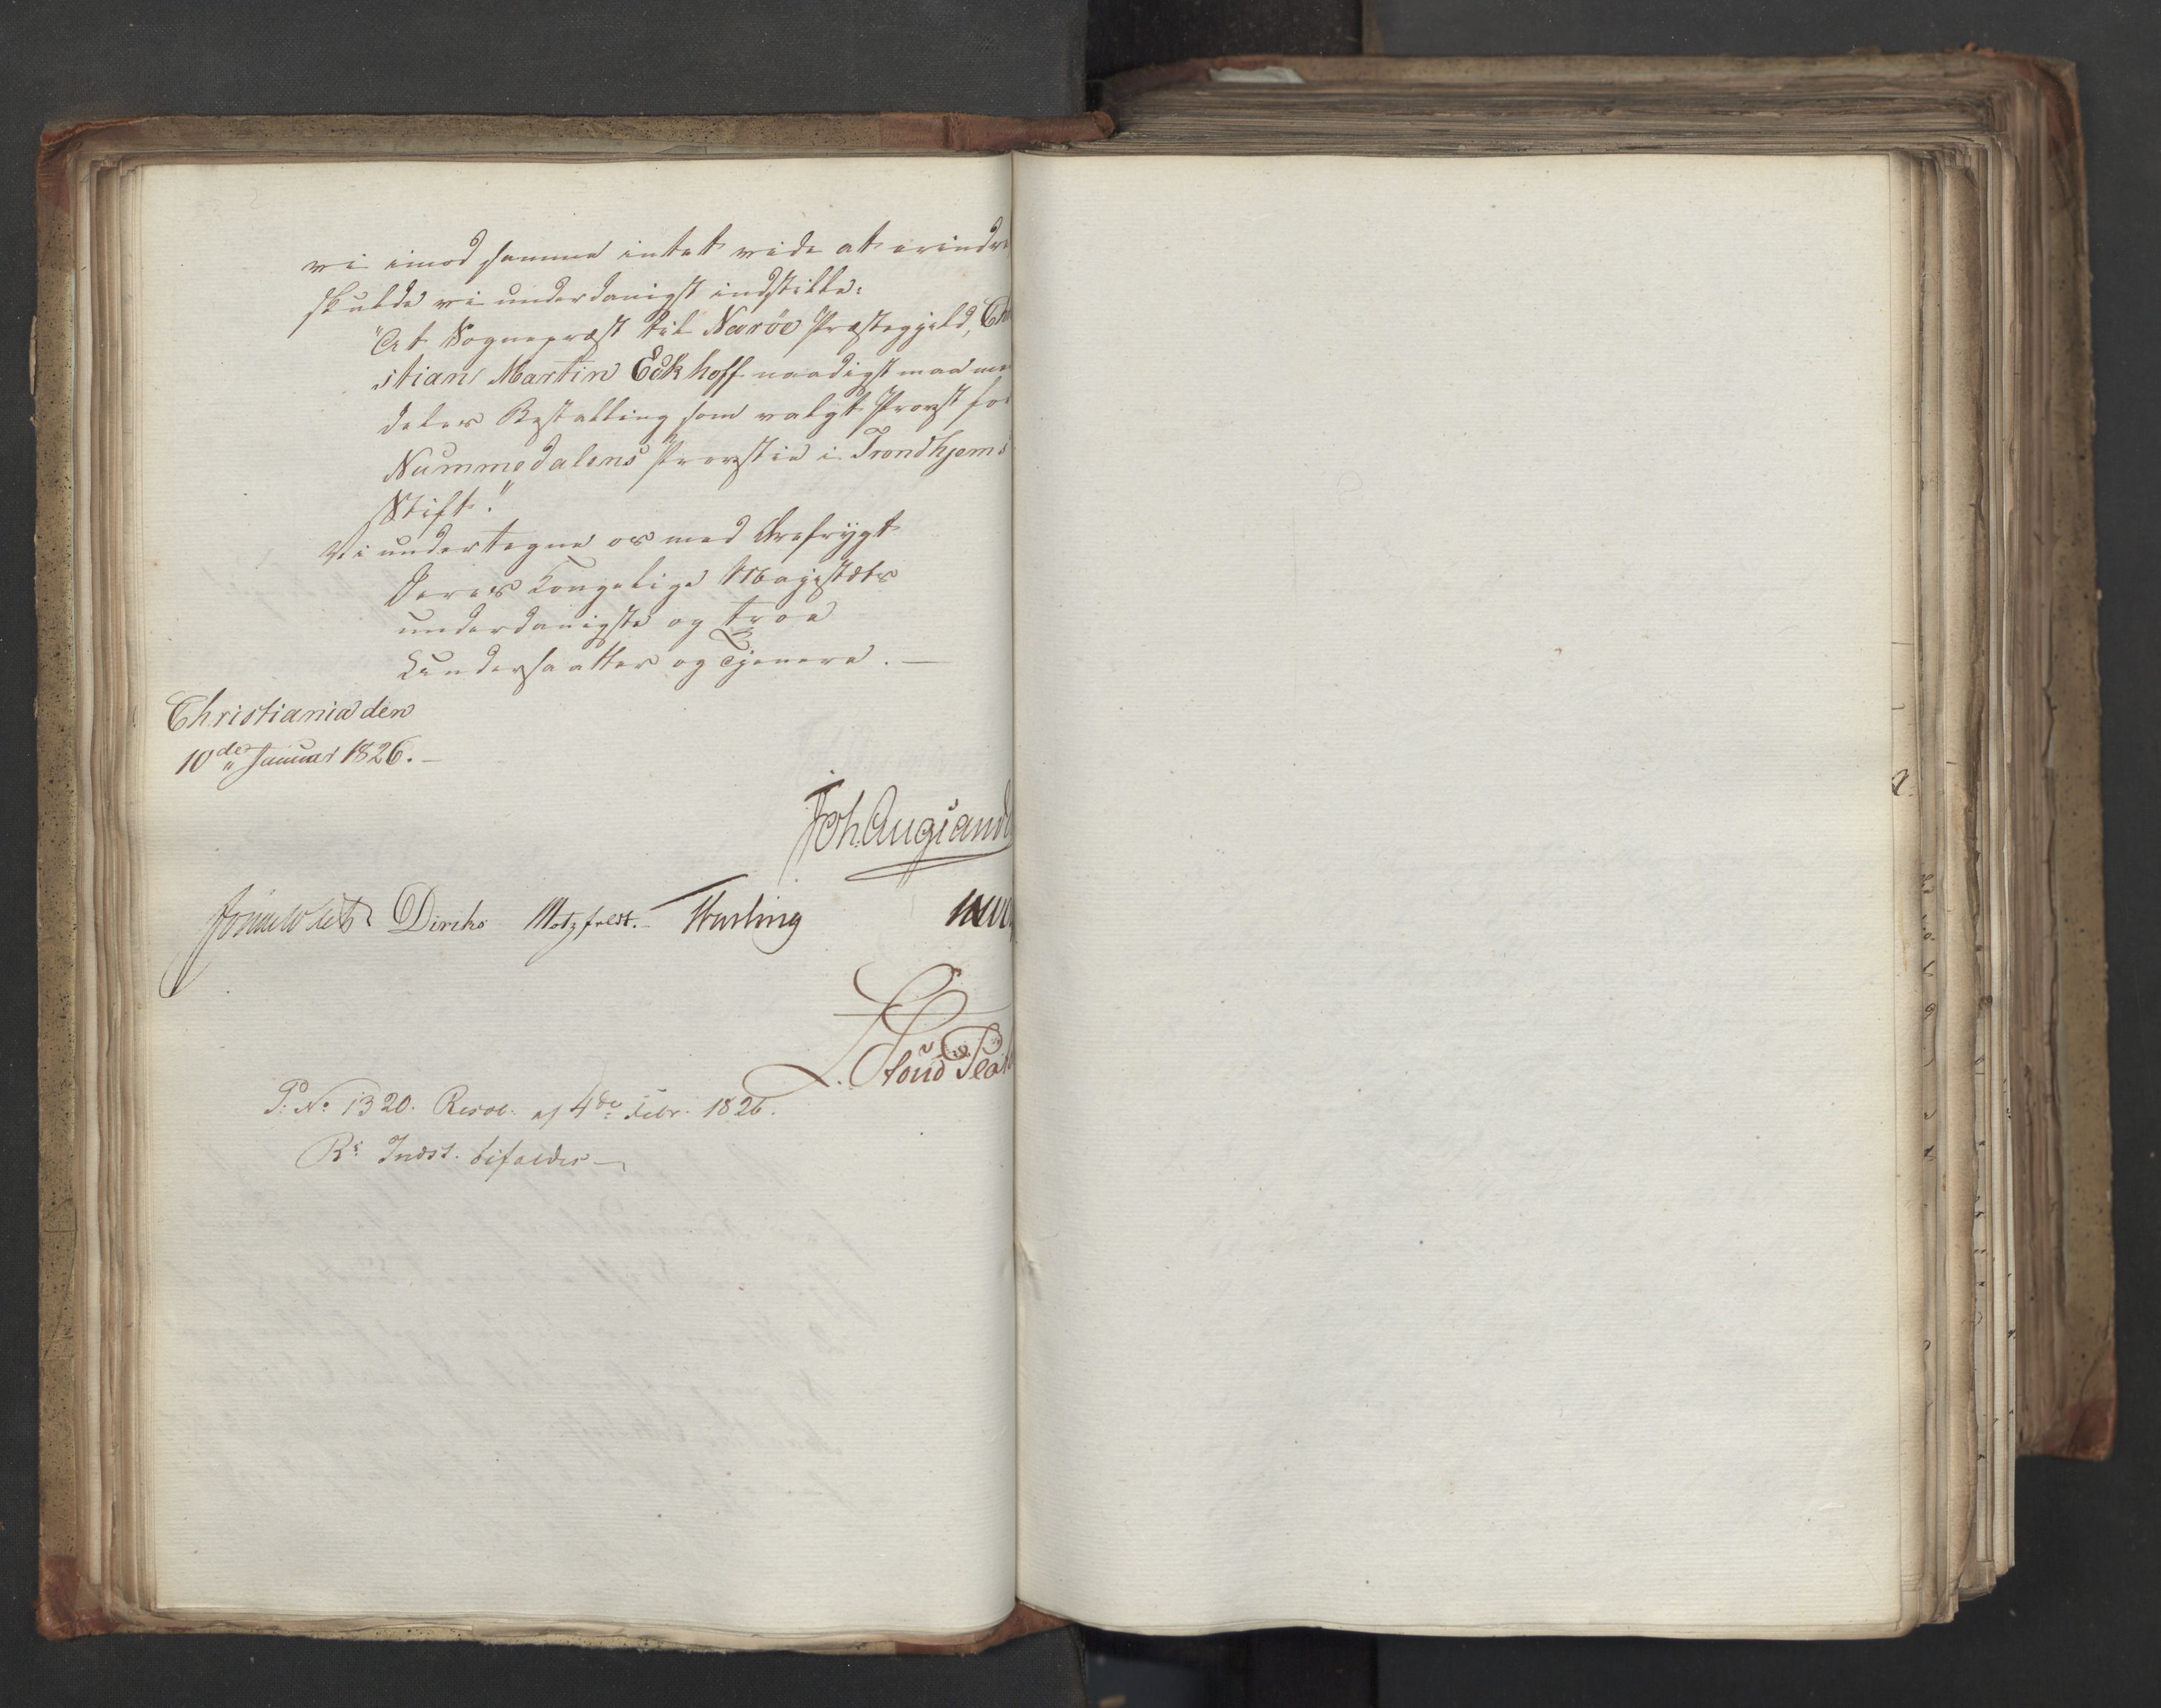 vi imod samme intet vide at erindre
skulde vi underdanigst indstille:
"At Sognepræst til Nærøe Præstegjeld, Chri
stian Martin Eckhoff naadigst maa med
deles Bestalling som valgt Provst for
Nummedalens Provstie i Trondhjems
Stift."
Vi undertegne os med Ærefrygt
Deres Kongelige Majestæts
underdanigste og troe
Undersaatter og Tjenere. —
Christiania den
10de Januar 1826. —
Joh. Aug. Sand
Diriks Motzfeldt.
P: No 1320. Resol. af 4de Febr. 1826.
Rs Indst. bifaldes —